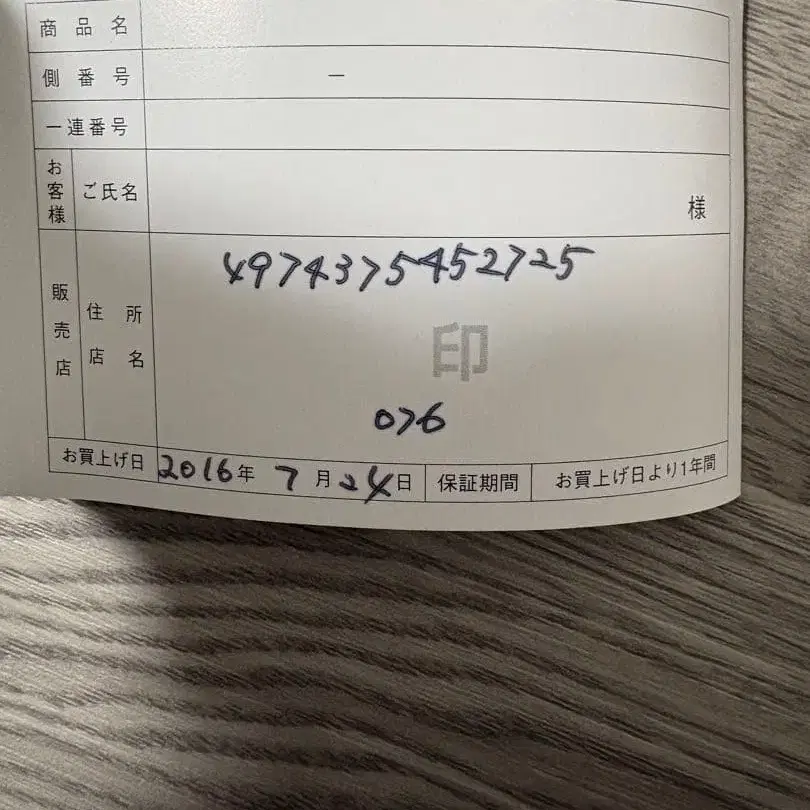 商品名
側番号 －
一連番号
お客様 ご氏名 様
販売店 住所 店名
4974375452725
印
076
お買上げ日 2016年 7月24日 保証期間 お買上げ日より1年間